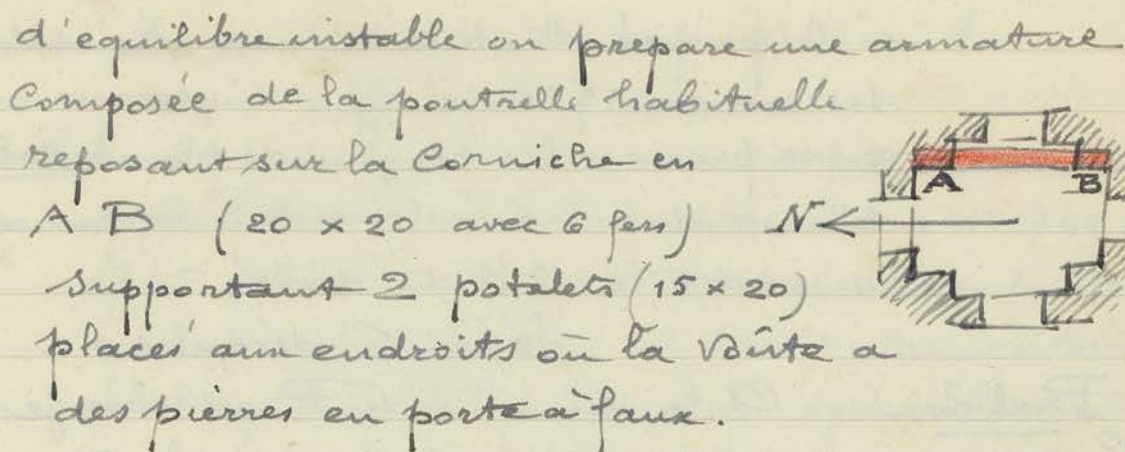 d'équilibre instable on prepare une armature
Composée de la poutrelle habituelle
reposant sur la Corniche en
A B (20 x 20 avec 6 fers)
supportant 2 potelets (15 x 20)
placés aux endroits où la voûte a
des pierres en porte à faux.
A B
N